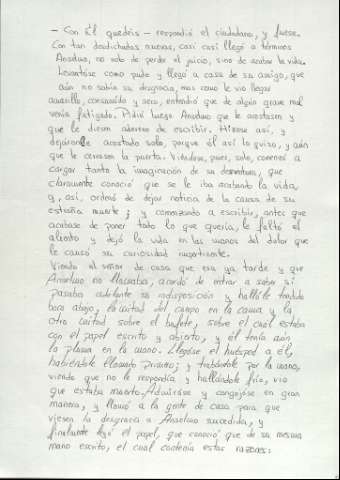 - Con Él quedéis - respondió el ciudadano, y fuese.
Con tan desdichadas nuevas, casi casi llegó a términos
Anselmo, no solo de perder el juicio, sino de acabar la vida.
Levantóse como pudo y llegó a casa de su amigo, que
aún no sabía su desgracia, mas como le vio llegar
amarillo, consumido y seco, entendió que de algún grave mal
venía fatigado. Pidió luego Anselmo que le acostasen y
que le diesen aderezo de escribir. Hízose así, y
dejáronle acostado solo, porque él así lo quiso, y aún
que le cerrasen la puerta. Viéndose, pues, solo, comenzó a
cargar tanto la imaginación de su desventura, que
claramente conoció que se le iba acabando la vida,
y, así, ordenó de dejar noticia de la causa de su
extraña muerte; y comenzando a escribir, antes que
acabase de poner todo lo que quería, le faltó el
aliento y dejó la vida en las manos del dolor que
le causó su curiosidad impertinente.
Viendo el señor de casa que era ya tarde y que
Anselmo no llamaba, acordó de entrar a saber si
pasaba adelante su indisposición y hallóle tendido
boca abajo, la mitad del cuerpo en la cama y la
otra mitad sobre el bufete, sobre el cual estaba
con el papel escrito y abierto, y él tenía aún
la pluma en la mano. Llegóse el huésped a él,
habiéndole llamado primero; y trabándole por la mano,
viendo que no le respondía y hallándole frío, vio
que estaba muerto. Admiróse y congojóse en gran
manera, y llamó a la gente de casa para que
viesen la desgracia a Anselmo sucedida, y
finalmente leyó el papel, que conoció que de su mesma
mano escrito, el cual contenía estas razones: